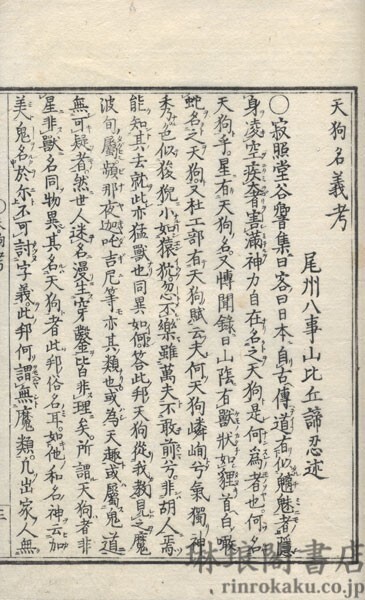 天狗名義考
尾州八事山比丘諦忍述
〇寂照堂谷響集曰客曰日本自古傳道有似魑魅者隱
身凌空疾奮害滿神力自在名之天狗是何爲者也何名
天狗乎星有天狗名又博聞録曰山陰有獸狀如狸首白啾
蛇名之天狗又杜工部有天狗賦云夫何天狗嶙峋兮氣獨神
秀色似狻猊小如猿狖忽不樂雖萬夫不敢前兮非胡人焉
能知其去就此亦猛獸也同異如何答此邦天狗從我教見之魔
波旬屬頻那夜迦吒吉尼等亦其類也或爲天趣或屬鬼道
無可疑者然世人迷名漫生穿鑿皆非理矣所謂天狗者非
星非獸名同物異其名天狗者此邦俗名耳如他和名神云加
美鬼名於尓不可討字義此邦何謂無魔類凢出家人無
天狗考
三
琳琅閣書店
rinrokaku.co.jp